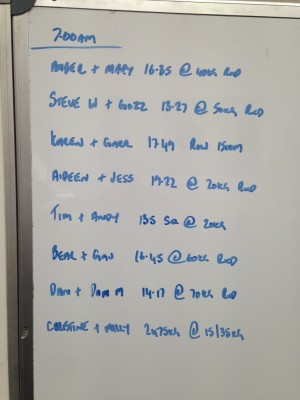 7:00AM
AMBER + MARY 16:35 @ 40KG RXD
STEVE W + GOZZ 13:27 @ 50KG RXD
KAREN + 17:49 ROW 1500M
AIDEEN + JESS 19:22 @ 20KG RXD
TIM + ANDY 135 SQ @ 20KG
BEAR + 16:45 @ 60KG RXD
DAN + DAN M 14:17 @ 70KG RXD
CHRISTINE + MILLY @ 15/35KG